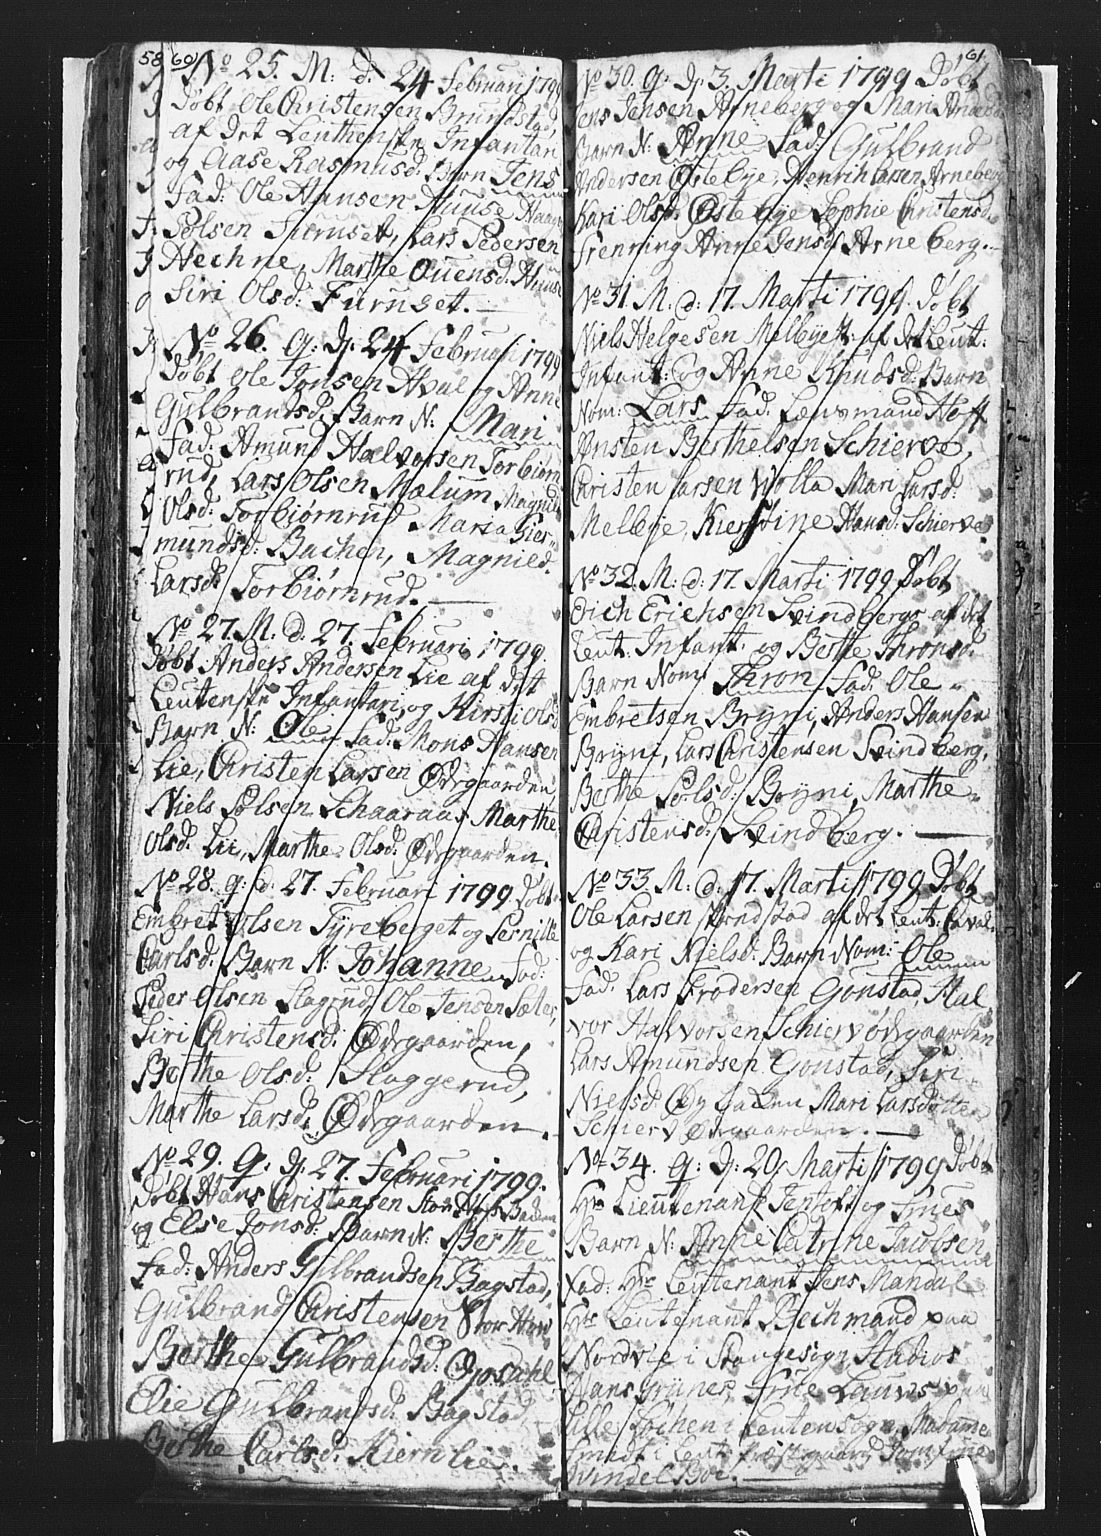 58 60
No 25. M: d: 24 Februari 1799
Døbt Ole Christensen Brundstad
af det Leuthenske Infanteri
og Aase Rasmusd: Barn Jens
Fad: Ole Hansen Huuse Haagen
Polsen Furuset, Lars Pedersen
Hechne, Marthe Ouensd: Huuse
Siri Olsd: Furuset.
No 26. q: d: 24 Februari 1799
Døbt Ole Jonsen Hval og Anne
Gulbrandsd: Barn N: Mari
Fad: Amund Halvorsen Torbiørn
rud, Lars Olsen Mælum Magnild
Olsd: Torbiørnrud Maria Gier-
mundsd: Bachen, Magnield
Larsd: Torbiørnrud.
No 27. M. d. 27. Februari 1799
Døbt Anders Andersen Lie af det
Leutenske Infantari og Kirsti Olsd
Barn N: Ole Fad: Mons Hansen
Lie, Christen Larsen Ødegaarden
Niels Polsen Schaaraas Marthe
Olsd: Lie, Marthe Olsd: Ødegaarden.
No 28. q: d: 27. Februari 1799 Døbt
Embret Olsen Tyreberget og Pernille
Carlsd: Barn N: Johanne Fad:
Peder Olsen Slagrud, Ole Jensen Sæter,
Siri Christensd: Ødegaarden,
Berthe Olsd: Slaggerud,
Marthe Larsd: Ødegaarden.
No 29. q. d. 27. Februari 1799.
Døbt Hans Christensen Stor Hofs Backen
og Else Jonsd: Barn N: Berthe
Fad: Anders Gulbrandsen Bagstad,
Gulbrand Christensen Stor Hov
Berthe Gulbrandsd: Opsahl
Elie Gulbrandsd: Bagstad,
Berthe Carlsd: Kiernlie.
61
No 30. q: d: 3. Marti 1799 Døbt
Jens Jensen Arneberg og Mari
Barn N: Anne Fad: Gulbrand
Andersen Østebye, Henrich Larsen Arneberg
Kari Olsd: Østebye Sophie Christensd:
Frenning Anne Jensd: Arneberg.
No 31. M: d: 17. Marti 1799. Døbt
Niels Helgesen Melbye af det Leut:
Infant: og Anne Knudsd: Barn
Nom: Lars Fad: Lensmand Hoff
Arsten Berthelsen Schierve,
Christen Larsen Wolla Mari Larsd:
Melbye, Kierstine Hansd: Schierve
No 32. M: d: 17. Marti 1799 Døbt
Erich Erichsen Svindberg af det
Leut: Infant: og Berthe Thronsd:
Barn Nom: Thron Fad: Ole
Embretsen Bryni, Anders Hansen
Bryni, Lars Christensen Svindberg,
Berthe Polsd: Bryni, Marthe
Christensd: Svindberg.
No 33. M: d: 17. Marti 1799 Døbt
Ole Larsen af det Leut: Caval.
og Kari Nielsd: Barn Nom: Ole
Fad: Lars Frodersen Gonstad, Hal
vor Halvorsen Schierv Ødegaarden
Lars Amundsen Gonstad, Siri
Nielsd: Mari Larsdotter
Schierv Ødegaarden.
No 34. q: d: 20. Marti 1799 Døbt
Hr. Lieutenant og Frues
Barn N: Anne Catrine Jacobsen
Fad: Hr. Leutenant Jens Mandal
Hr. Leutenant Bechmand paa
Nordvie i Stangesogn, Studios
Hans Grüner, Frue Lauvs paa
Lille Sochen i Leutensogn, Madame
Smedt i Leut. Præstegaard, Jomfrue
Vindelboe.